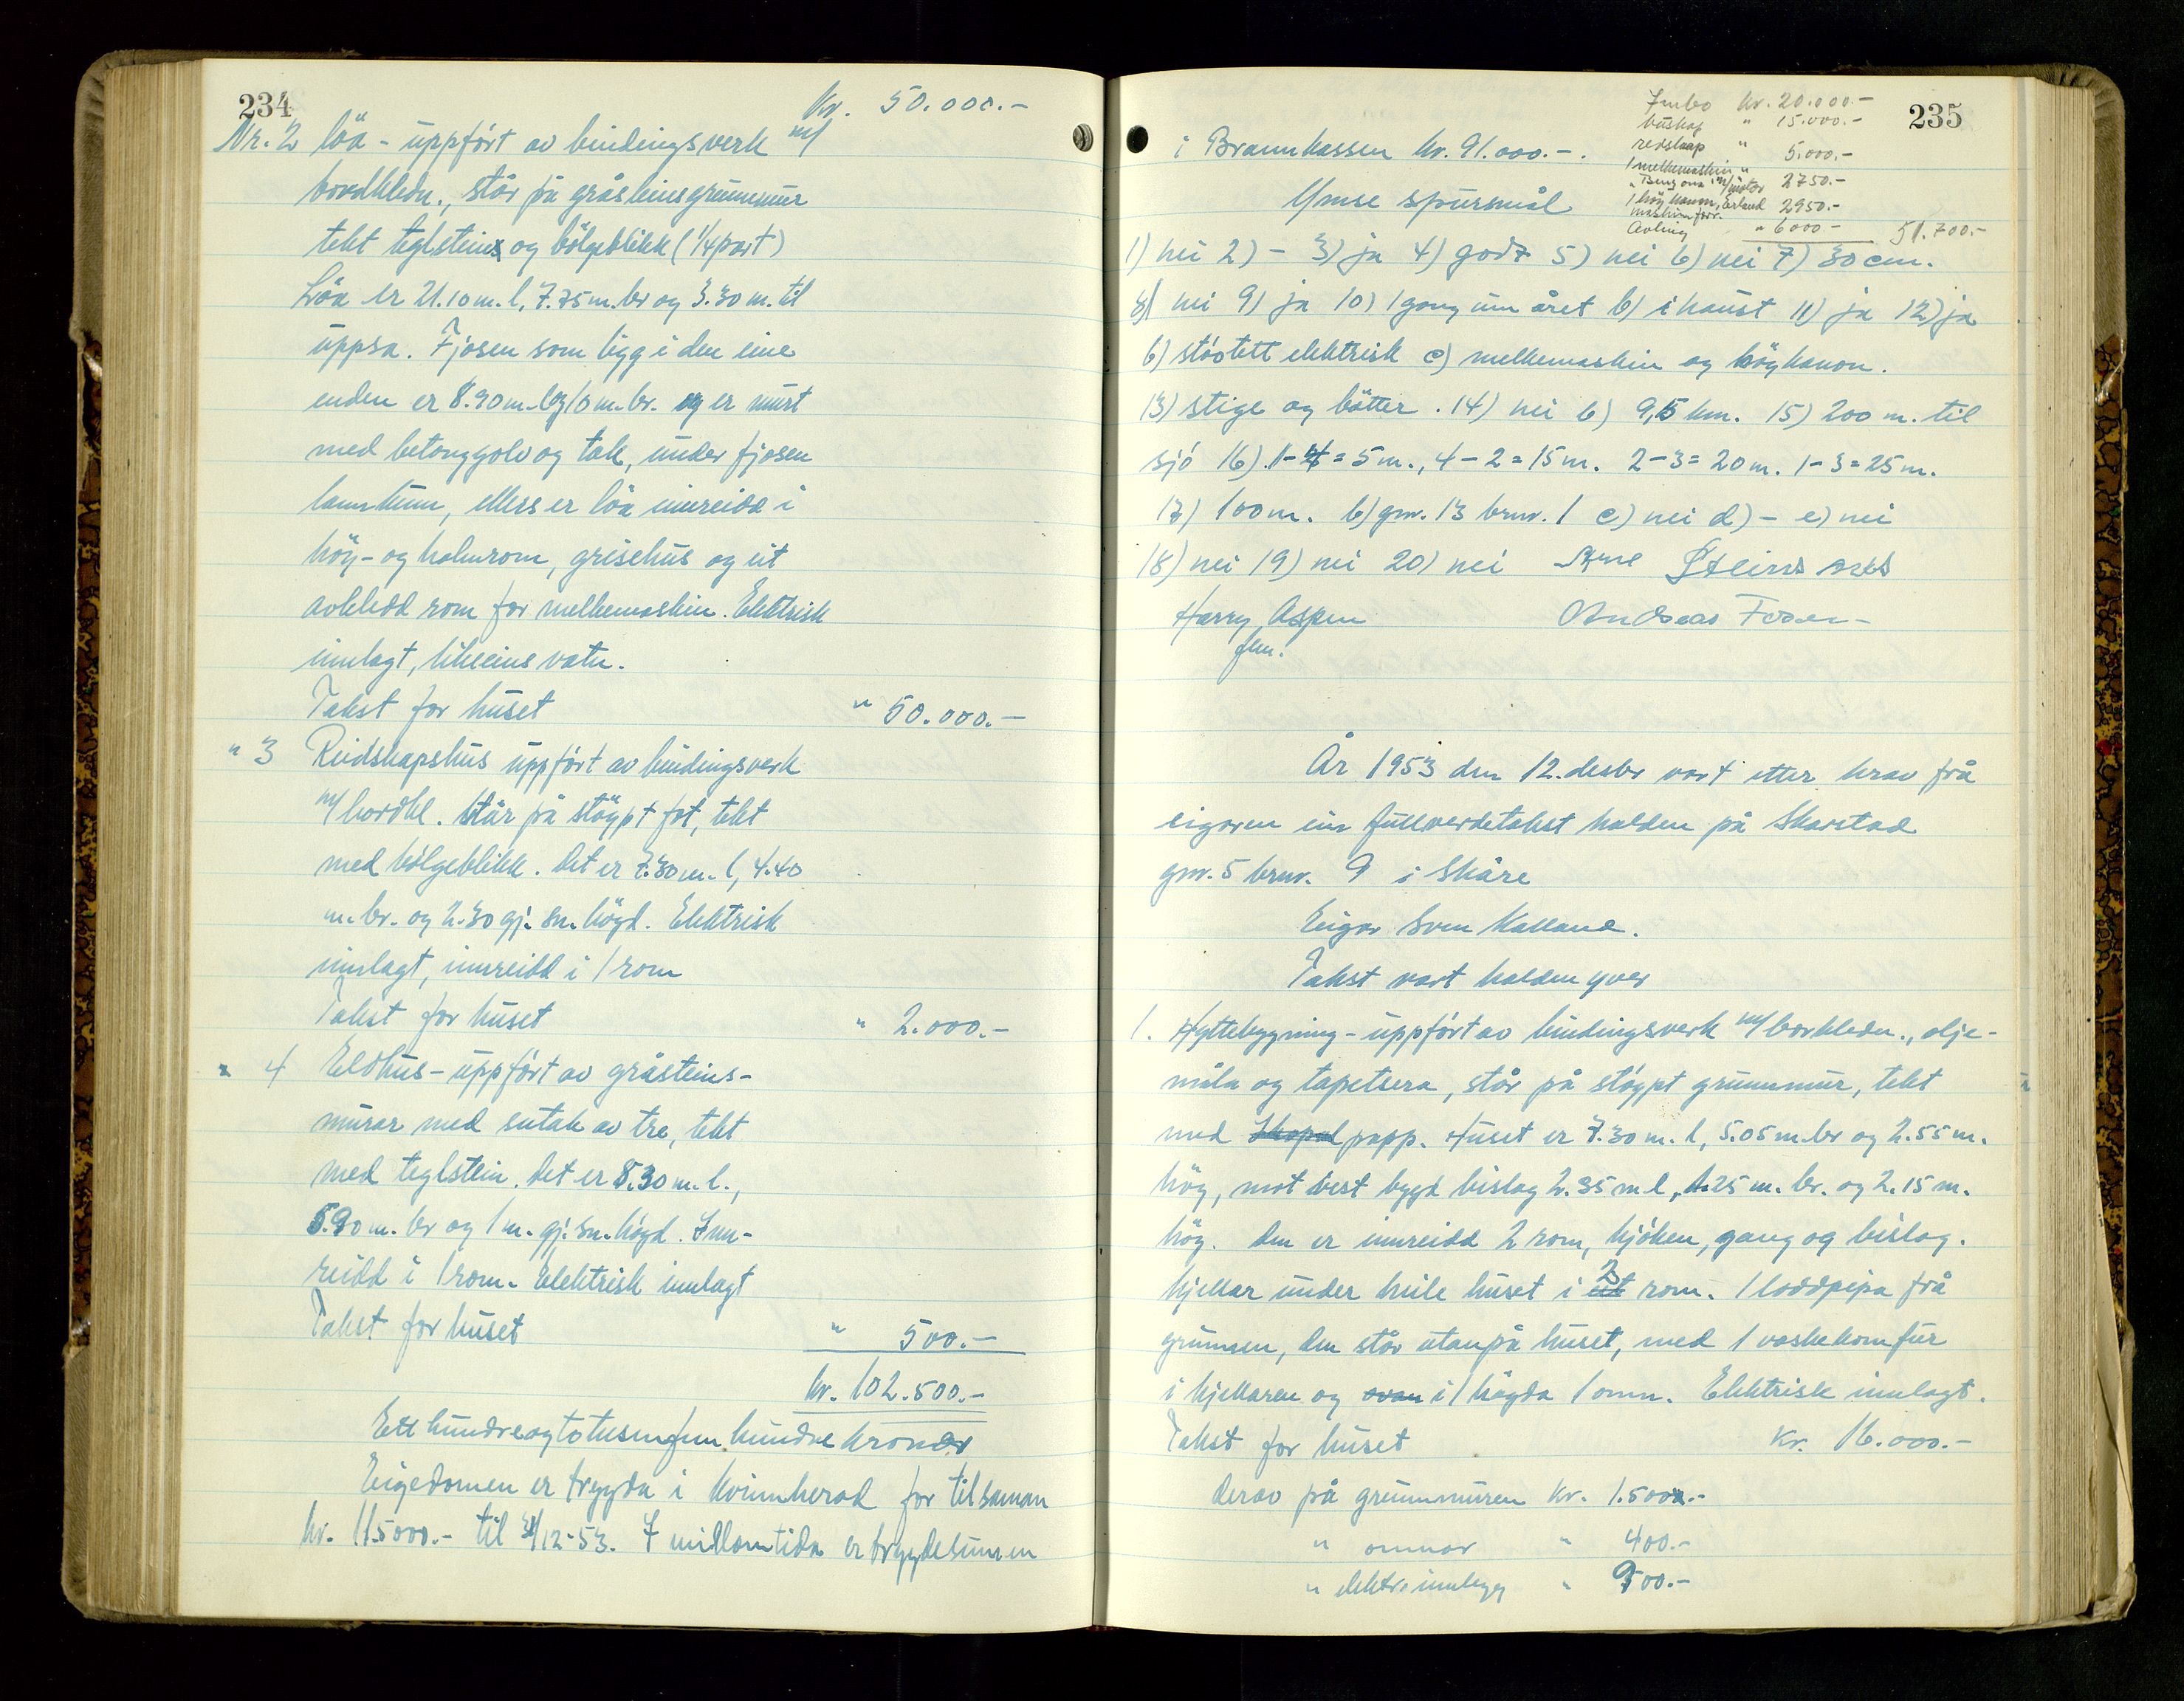 234
Kr. 50.000.-
Nr. 2 löa - uppført av bindingsverk m/
bordkledn., står på gråsteinsgrunnmur
tekt teglstein og bölgeblikk (1/4 part)
Löa er 21.10 m. l, 7.75 m. br og 3.30 m. til
uppsa. Fjosen som ligg i den eine
enden er 8.90 m. l og 10 m. br. og er murt
med betonggolv og tak, under fjosen
landkum, elless er löa innreidd i
höy- og halmrom, grisehus og eit
avkledd rom for melkemaskin. Elektrisk
innlagt, likeeins vatn.
Takst for huset " 50.000.-
" 3 Reidskapshus uppfört av bindingsverk
m/bordkl. Står på stöypt fot, tekt
med bölgeblikk. Det er 7.30 m. l, 4.40
m. br. og 2.30 gj. sn. högd. Elektrisk
innlagt, innreidd i 1 rom
Takst for huset " 2.000.-
" 4 Eldhus - uppfört av gråsteins-
murar med sutak av tre, tekt
med teglstein. Det er 8.30 m. l.,
5.90 m. br og 1 m. gj. sn. högd. Inn-
reidd i 1 rom. Elektrisk innlagt
Takst for huset " 500.-
kr. 102.500.-
Ett hundreogtotusenfem hundre kroner
Eigedomen er trygda i Kvinnherad for tilsaman
kr. 115000.- til 31/12-53. I millomtida er trygdesummen
235
Inbo kr. 20.000.-
buskap " 15.000.-
redskap " 5.000.-
1 melkemaskin "
" Bensona m/motor 2750.-
1 höykanon, Erland 2950.-
maskinfor.
Avling " 6000.- 51.700.-
i Brannkassen kr. 91.000.-.
Ymse spursmål
1) nei 2) - 3) ja 4) godt 5) nei 6) nei 7) 30 cm.
8) nei 9) ja 10) 1 gong um året b) i haust 11) ja 12) ja
b) stövtett elektrisk c) melkemaskin og höykanon.
13) stige og bötter. 14) nei b) 9,5 km. 15) 200 m. til
sjö 16). 1-4 = 5 m., 4-2 = 15 m. 2-3 = 20 m. 1-3 = 25 m.
17) 100 m. b) gnr. 13 brnr. 1 c) nei d) - e) nei
18) nei 19) nei 20) nei Arne Steinsnes
Harry Aspen Andreas Fosen
fm.
År 1953 den 12. desbr vart etter krav frå
eigaren ein fullverdetakst halden på Skarstad
gnr. 5 brnr. 9 i Skåre
Eigar Sven Kalland.
Takst vart halden yver
1. Hyttebygning - uppfört av bindingsverk m/borkledn., olje-
måla og tapetsera, står på stöypt grunnmur, tekt
med Skopal papp. Huset er 7.30 m. l, 5.05 m. br og 2.55 m.
hög, mot vest bygd bislag 2.35 m l, 1.25 m. br. og 2.15 m.
hög. Den er innreidd 2 rom, kjöken, gang og bislag.
Kjellar under heile huset i eit 2 rom. 1 loddpipa frå
grunnen, den står utanpå huset, med 1 vaskekomfur
i kjellaren og ovan i 1 högda 1 omn. Elektrisk innlagt.
Takst for huset Kr. 16.000.-
Derav på grunnmuren Kr. 1.500.-
" omnar " 400.-
" elektr. innlegg " 900.-